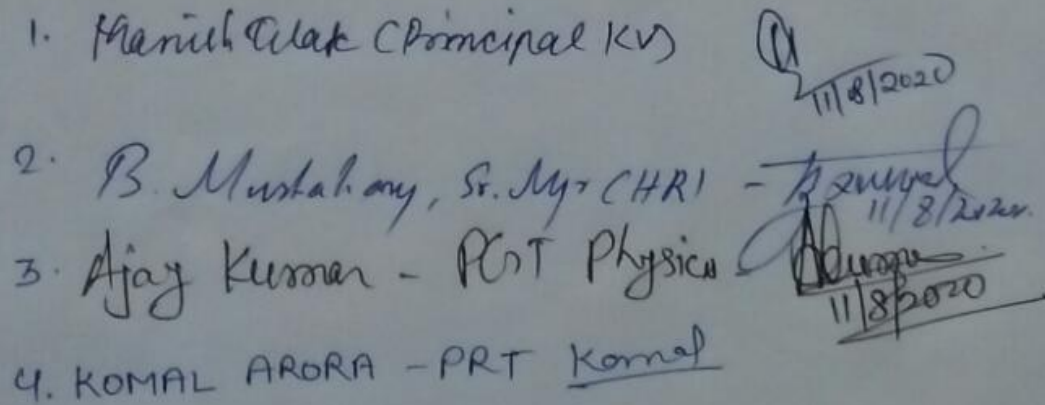 1. Manish Tilak (Principal KV)
11/8/2020
2. B. Mustahary, Sr. Mgr (HR) -
11/8/2020.
3. Ajay Kumar - PGT Physics
11/8/2020
4. KOMAL ARORA - PRT Komal